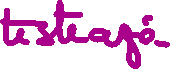 testeajó